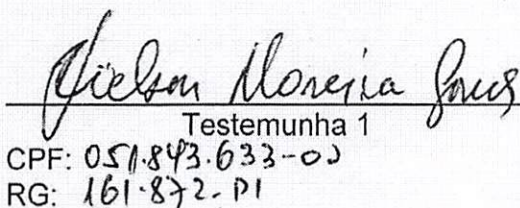 Nielson Moreira
Testemunha 1
CPF: 051.843.633-00
RG: 161.872-PI